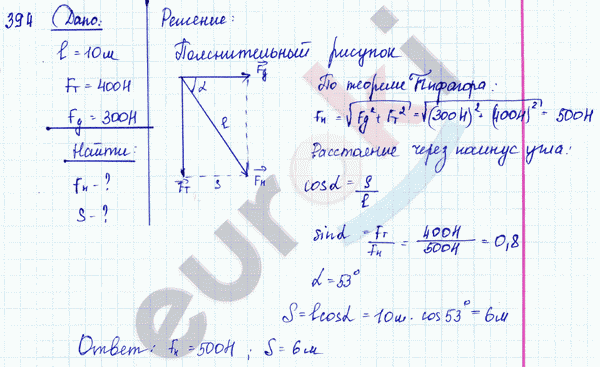 394 Дано:
l = 10м
Fт = 400Н
Fg = 300Н
Найти:
Fн - ?
S - ?
Решение:
Пояснительный рисунок
Fg
α
l
Fт
S
Fн
По теореме Пифагора:
Fн = √(Fg² + Fт²) = √((300Н)² + (400Н)²) = 500Н
Расстояние через косинус угла:
cosα = S/l
sinα = Fт/Fн = 400Н/500Н = 0,8
α = 53°
S = l cosα = 10м · cos 53° = 6м
Ответ: Fн = 500Н ; S = 6м
euroki